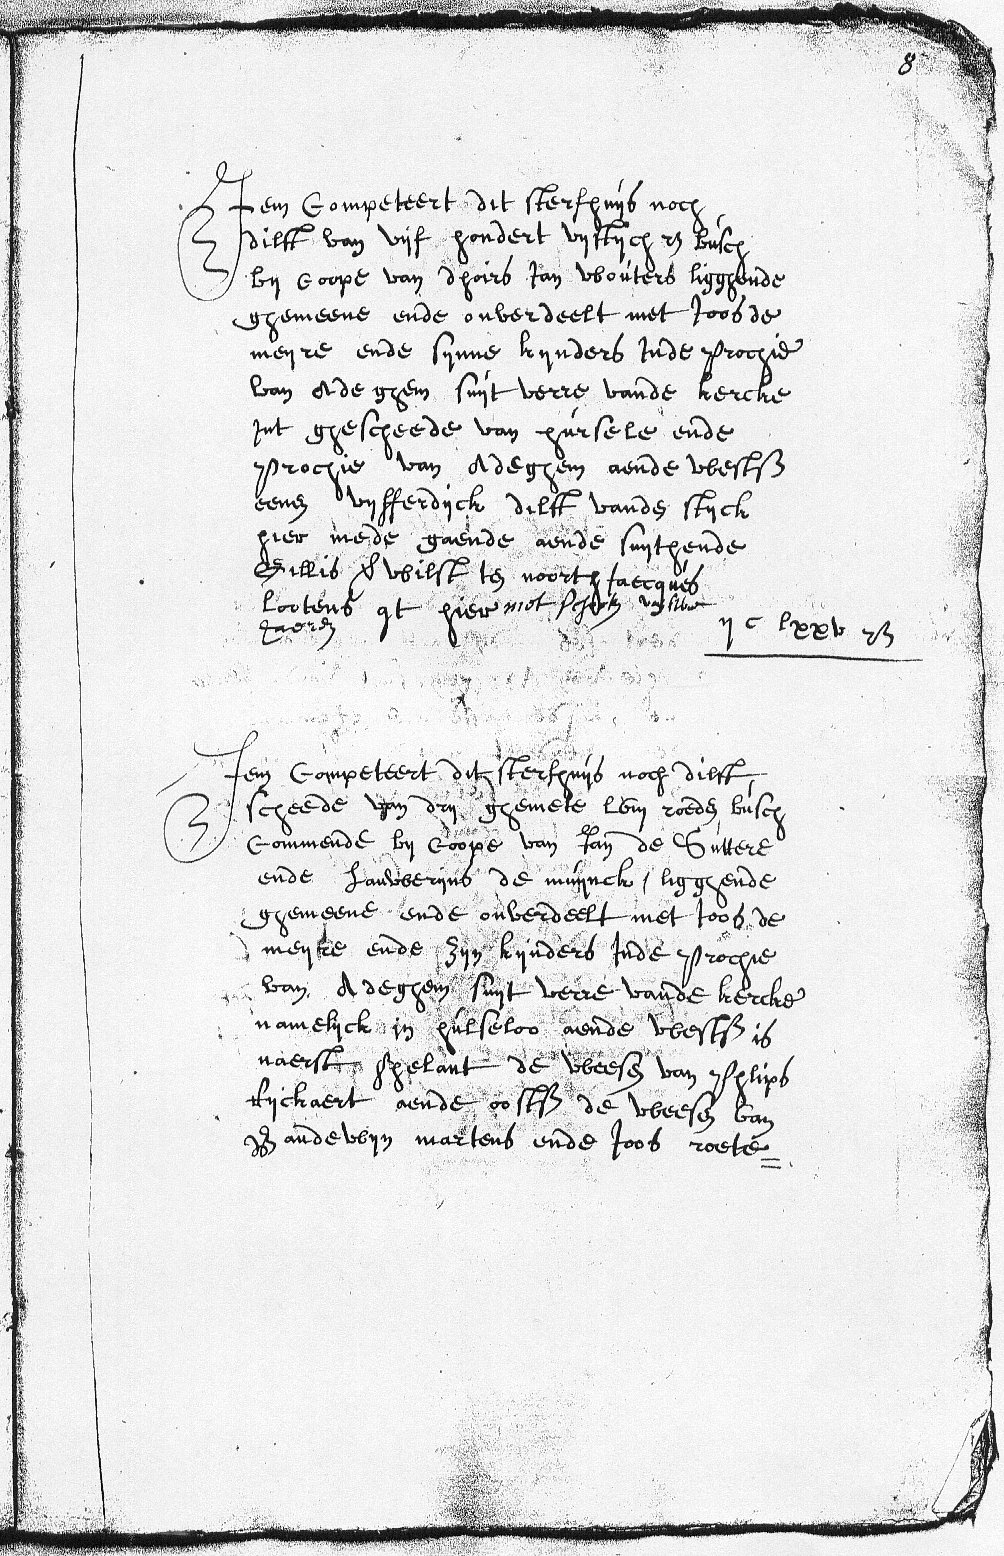 8
Item Competeert dit sterfhuijs noch
dilft van vijf hondert vijftijch R busch
bij Coope van dhoirs Jan Wouters ligghende
ghemeene ende onverdeelt met Joos de
meyre ende sijnne kijnders Inde prochie
van Adeghem suijt verre vande kercke
Int ghescheede van hursele ende
prochie van Adeghem aende westß
eenen vijfferdijck dilft vanden stijck
hier mede gaende aende suijthende
Gillis wilst ten noorth Jaecques
Lootens qt hier met
Jaeren
ij c lxxv R
Item Competeert dit sterfhuijs noch dilft
scheede van drij ghemete lviij roeden busch
Commende bij Coope van Jan de Suttere
ende Lauwerijns de muijnck / ligghende
ghemeene ende onverdeelt met Joos de
meyre ende zijn kijnders Inde prochie
van Adeghem suijt verre vande kercke
namelijck in hulseloo aende westß is
naerst ghelant de weesen van Phlips
Rijckaert aende oostß de weesen van
Bandewijn martens ende Joos roete